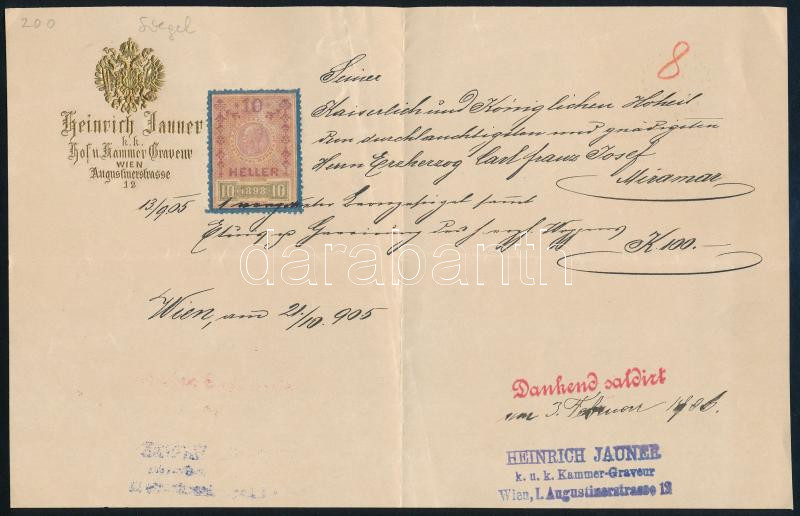 200
Siegel
8
Heinrich Jauner
k.k.
Hof u. Kammer Graveur
WIEN
Augustinerstrasse
12
10
HELLER
10 1898 10
Seiner
Kaiserlich und Königlichen Hoheit
den durchlauchtigsten und gnädigsten
Herrn Erzherzog Carl Franz Josef
Miramar
13/9 905
Bronzesiegel samt
Etuis
Gravirung des h. erzh. Wappens
K 100.—
Wien, am 21/10. 905
darabanth
Dankend saldirt
am 3. Februar 1906.
HEINRICH JAUNER
k. u. k. Kammer-Graveur
Wien, I. Augustinerstrasse 12